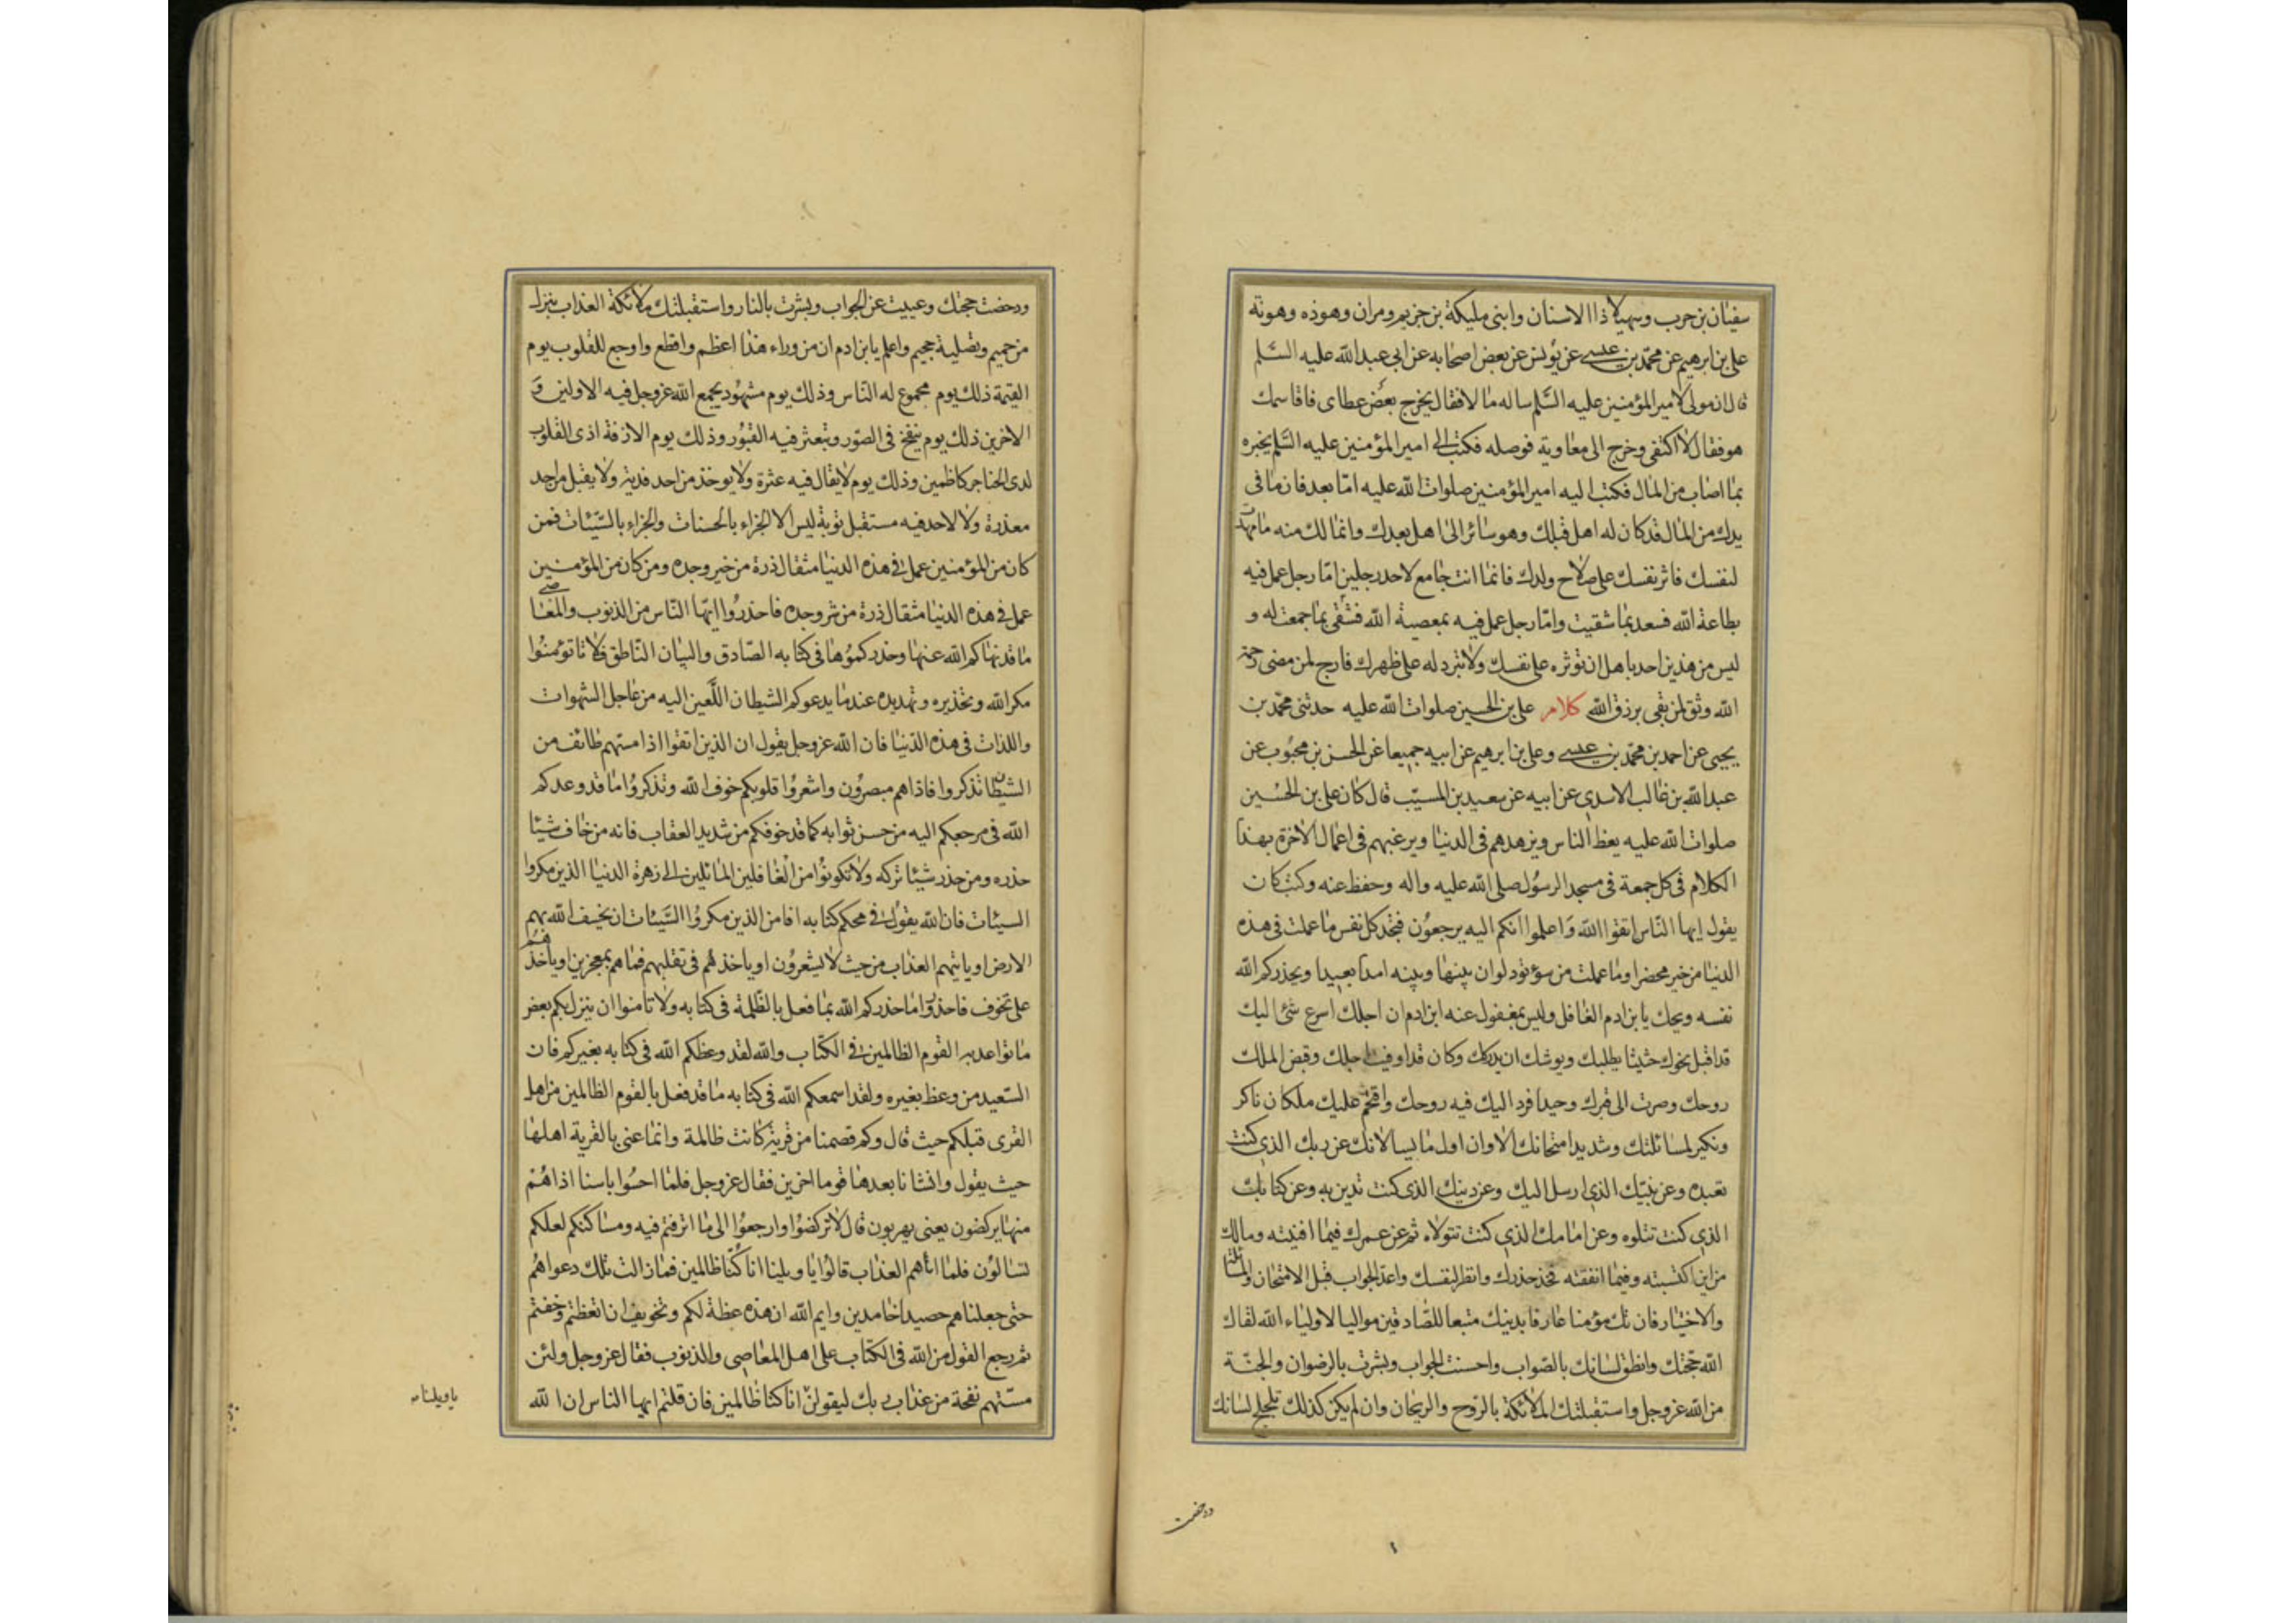 سفيان بن حرب وسهيلا ذا الاسنان وابنى مليكة بن جزيم ومران وهوذه وهونة
على بن ابرهيم عن محمّد بن عيسے عن يونس عن بعض اصحابه عن ابى عبد الله عليه السّلم
قال ان مولى لامير المؤمنين عليه السّلم ساله مالا فقال يخرج بعض عطاى فاقاسمك
هو فقال لا اكتفى وخرج الى معاوية فوصله فكتب الى امير المؤمنين عليه السّلم يخبره
بما اصاب من المال فكتب اليه امير المؤمنين صلوات الله عليه امّا بعد فان ما فى
يدك من المال قد كان له اهل قبلك وهو سائر الى اهل بعدك وانما لك منه ما مهدت
لنفسك فاثر نفسك على صلاح ولدك فانما انت جامع لاحد رجلين امّا رجل عمل فيه
بطاعة الله فسعد بما شقيت وامّا رجل عمل فيه بمعصية الله فشقى بما جمعت له و
ليس من هذين احد باهل ان توثره على نفسك ولا تبرد له على ظهرك فارج لمن مضى رحمة
الله وثق لمن بقى برزق الله كلام على بن الحسين صلوات الله عليه حدثنى محمّد بن
يحيى عن احمد بن محمّد بن عيسے وعلى بن ابرهيم عن ابيه جميعا عن الحسن بن محبوب عن
عبد الله بن غالب الاسدى عن ابيه عن سعيد بن المسيّب قال كان على بن الحسين
صلوات الله عليه يعظ الناس ويزهدهم فى الدنيا ويرغبهم فى اعمال الاخرة بهذا
الكلام فى كل جمعة فى مسجد الرسول صلى الله عليه واله وحفظ عنه وكتب كان
يقول ايها النّاس اتقوا الله واعلموا انكم اليه يرجعون فتجد كل نفس ما عملت فى هذه
الدنيا من خير محضرا وما عملت من سوء تود لوان بينها وبينه امدا بعيدا ويحذركم الله
نفسه ويحك يا بن ادم الغافل وليس بمغفول عنه ابن ادم ان اجلك اسرع شئ اليك
قد اقبل نحوك حثيثا يطلبك ويوشك ان يدركك وكان قد اوفيت اجلك وقبض الملك
روحك وصرت الى قبرك وحيدا فرد اليك فيه روحك واقتحم عليك ملكان ناكر
ونكير لمسائلتك وشديد امتحانك الا وان اول ما يسالانك عن ربك الذى كنت
تعبده وعن نبيّك الذى ارسل اليك وعن دينك الذى كنت تدين به وعن كتابك
الذى كنت تتلوه وعن امامك الذى كنت تتولاه ثم عن عمرك فيما افنيته ومالك
من اين اكتسبته وفيما انفقته فخذ حذرك وانظر لنفسك واعد الجواب قبل الامتحان والمسائلة
والاختبار فان تك مؤمنا عارفا بدينك متبعا للصّادقين مواليا لاولياء الله لقاك
الله حجّتك وانطق لسانك بالصّواب واحسنت الجواب وبشرت بالرضوان والجنّة
من الله عز وجل واستقبلتك الملائكة بالرّوح والريحان وان لم يكن كذلك تلجلج لسانك
ودحضت
ودحضت حجتك وعييت عن الجواب وبشرت بالنار واستقبلتك ملائكة العذاب بنزل
من حميم وتصلية جحيم واعلم يا بن ادم ان من وراء هذا اعظم وافظع واوجع للقلوب يوم
القيمة ذلك يوم مجموع له النّاس وذلك يوم مشهود يجمع الله عز وجل فيه الاولين وَ
الاخرين ذلك يوم ينفخ فى الصّور وتبعثر فيه القبور وذلك يوم الازفة اذى القلوب
لدى الحناجر كاظمين وذلك يوم لا يقال فيه عثرة ولا يوخذ من احد فدية ولا يقبل من احد
معذرة ولا لاحد فيه مستقبل توبة ليس الا الجزاء بالحسنات والجزاء بالسّيّئات فمن
كان من المؤمنين عمل فى هذه الدنيا مثقال ذرة من خير وجده ومن كان من المؤمنين
عمل فى هذه الدنيا مثقال ذرة من شر وجده فاحذروا ايّها النّاس من الذنوب والمعاصى
ما قد نهاكم الله عنها وحذركموها فى كتابه الصّادق والبيان النّاطق فلا تاتؤمنوا
مكر الله وتحذيره وتهديده عند ما يدعوكم الشيطان اللّعين اليه من عاجل الشهوات
واللذات فى هذه الدّنيا فان الله عز وجل يقول ان الذين اتقوا اذا مستهم طائف من
الشيطان تذكروا فاذا هم مبصرون واشعروا قلوبكم خوف الله وتذكروا ما قد وعدكم
الله فى مرجعكم اليه من حسن ثوابه كما قد خوفكم من شديد العقاب فانه من خاف شيئا
حذره ومن حذر شيئا تركه ولا تكونوا من الغافلين المائلين الى زهرة الدنيا الذين مكروا
السيئات فان الله يقول فى محكم كتابه افامن الذين مكروا السّيئات ان يخسف الله بهم
الارض او ياتيهم العذاب من حيث لا يشعرون او ياخذهم فى تقلبهم فما هم بمعجزين او ياخذهم
على تخوف فاحذروا ما حذركم الله بما فعل بالظّلمة فى كتابه ولا تامنوا ان ينزل بكم بعض
ما تواعد به القوم الظالمين فى الكتاب والله لقد وعظكم الله فى كتابه بغيركم فان
السّعيد من وعظ بغيره ولقد اسمعكم الله فى كتابه ما قد فعل بالقوم الظالمين من اهل
القرى قبلكم حيث قال وكم قصمنا من قرية كانت ظالمة وانما عنى بالقرية اهلها
حيث يقول وانشانا بعدها قوما اخرين فقال عز وجل فلما احسّوا باسنا اذا هم
منها يركضون يعنى يهربون قال لا تركضوا وارجعوا الى ما اترفتم فيه ومساكنكم لعلكم
تسالون فلما اتاهم العذاب قالوا يا ويلنا انا كنّا ظالمين فما زالت تلك دعواهم
حتى جعلناهم حصيدا خامدين وايم الله ان هذه عظة لكم وتخويف ان اتعظتم وخفتم
ثم رجع القول من الله فى الكتاب على اهل المعاصى والذنوب فقال عز وجل ولئن
مسّتهم نفحة من عذاب ربك ليقولنّ انا كنا ظالمين فان قلتم ايها الناس ان الله